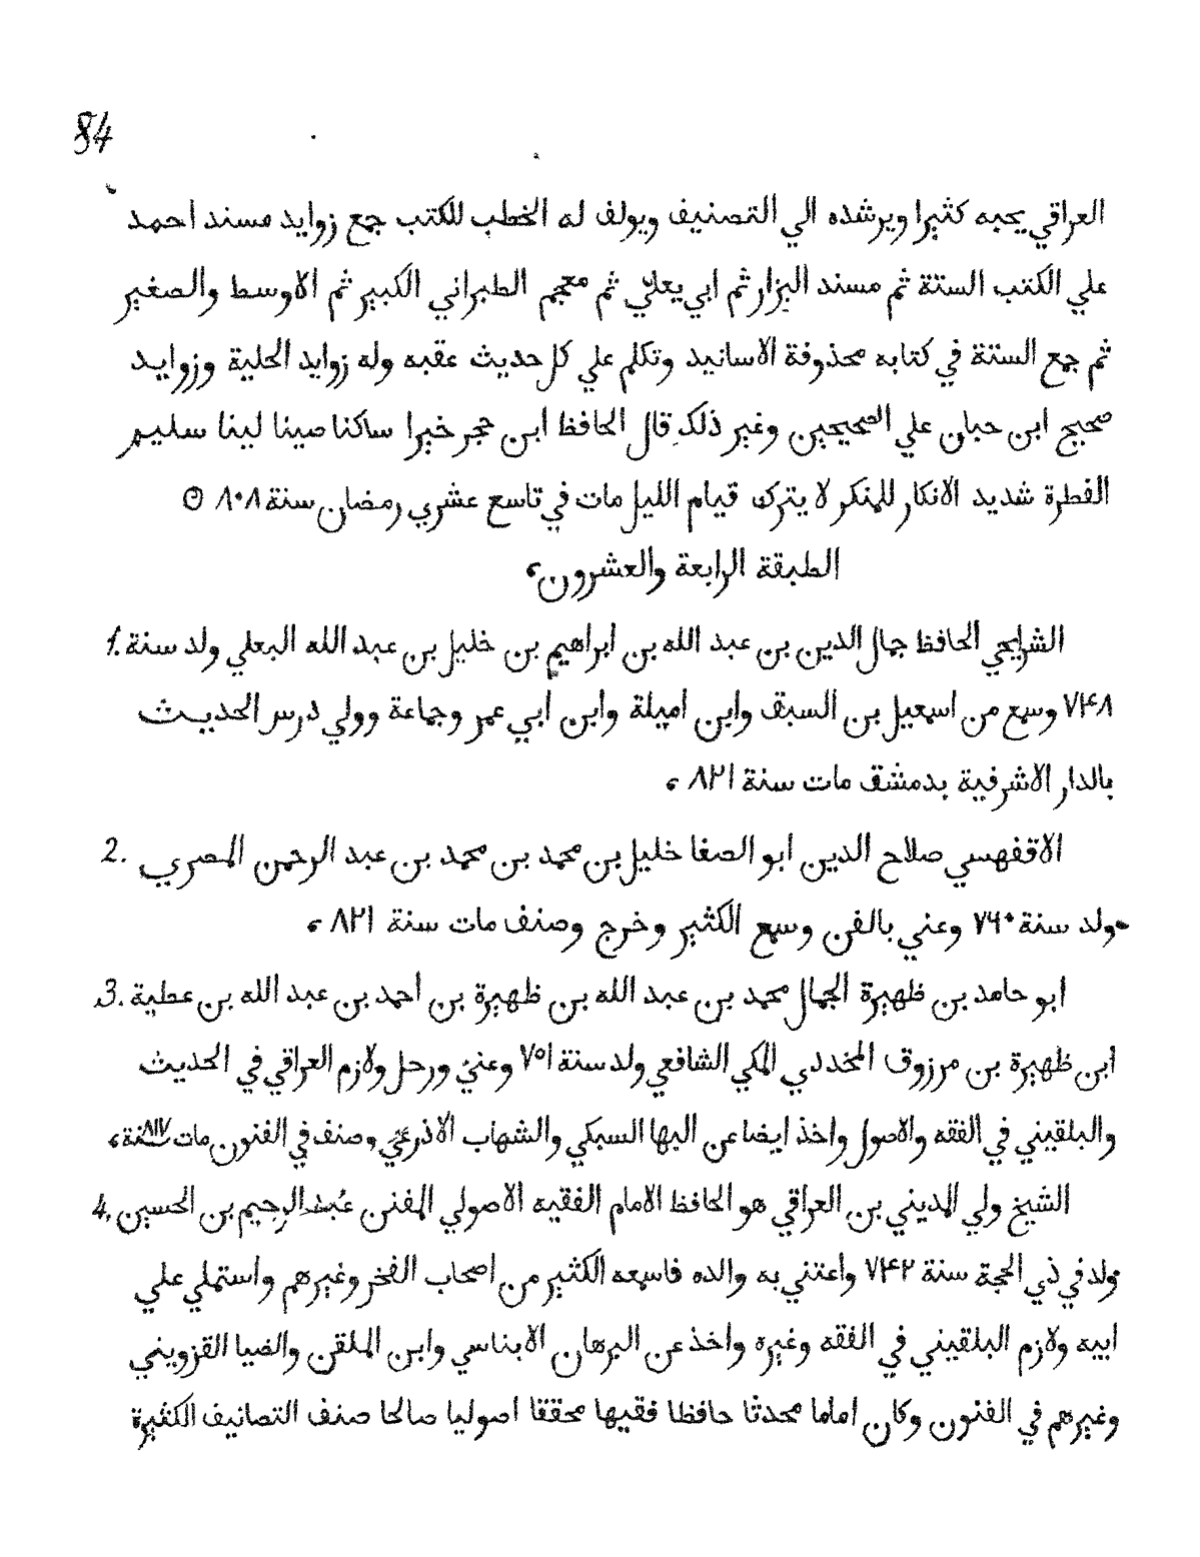 84
العراقي يحبه كثيرا ويرشده الي التصنيف ويولف له الخطب للكتب جمع زوايد مسند احمد
علي الكتب الستة ثم مسند البزار ثم ابي يعلي ثم معجم الطبراني الكبير ثم الاوسط والصغير
ثم جمع الستة في كتابه محذوفة الاسانيد وتكلم علي كل حديث عقبه وله زوايد الحلية وزوايد
صحيح ابن حبان علي الصحيحين وغير ذلك قال الحافظ ابن حجر خيرا ساكنا صينا لينا سليم
الفطرة شديد الانكار للمنكر لا يترك قيام الليل مات في تاسع عشري رمضان سنة ٨٠٨
الطبقة الرابعة والعشرون،
1. الشرايحي الحافظ جمال الدين بن عبد الله بن ابراهيم بن خليل بن عبد الله البعلي ولد سنة
٧۴٨ وسمع من اسمعيل بن السبق وابن اميلة وابن ابي عمر وجماعة وولي درس الحديث
بالدار الاشرفية بدمشق مات سنة ٨٢١ ،
2. الاقفهسي صلاح الدين ابو الصفا خليل بن محمد بن محمد بن عبد الرحمن المصري
ولد سنة ٧٦٠ وعني بالفن وسمع الكثير وخرج وصنف مات سنة ٨٢١ ،
3. ابو حامد بن ظهيرة الجمال محمد بن عبد الله بن ظهيرة بن احمد بن عبد الله بن عطية
ابن ظهيرة بن مرزوق المخددي المكي الشافعي ولد سنة ٧٥١ وعني ورحل ولازم العراقي في الحديث
والبلقيني في الفقه والاصول واخذ ايضا عن البها السبكي والشهاب الاذرعي وصنف في الفنون مات سنة ٨١٧ ،
4. الشيخ ولي الديني بن العراقي هو الحافظ الامام الفقيه الاصولي المفنن عبد الرحيم بن الحسين
ولد في ذي الحجة سنة ٧۴٢ واعتني به والده فاسمعه الكثير من اصحاب الفخر وغيرهم واستملي علي
ابيه ولازم البلقيني في الفقه وغيره واخذ عن البرهان الابناسي وابن الملقن والضيا القزويني
وغيرهم في الفنون وكان اماما محدثا حافظا فقيها محققا اصوليا صالحا صنف التصانيف الكثيرة